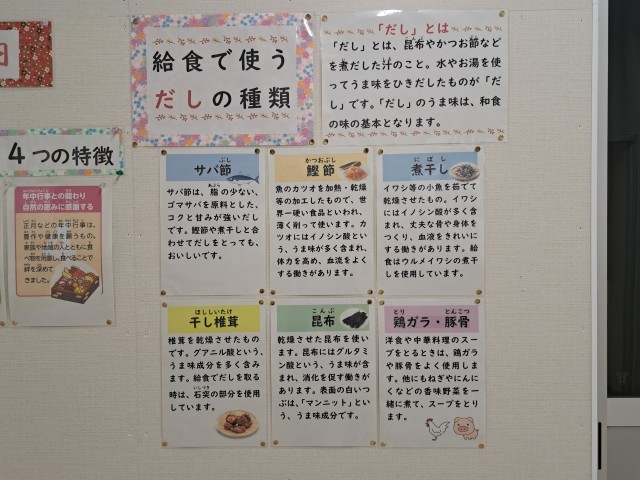 給食で使う
だしの種類
「だし」とは
「だし」とは、昆布やかつお節など
を煮だした汁のこと。水やお湯を使
ってうま味をひきだしたものが「だ
し」です。「だし」のうま味は、和食
の味の基本となります。
4つの特徴
年中行事との関わり
自然の恵みに感謝する
正月などの年中行事は、
豊作や健康を願うもの。
家族や地域の人とともに食
べ物を用意し、食べることで
絆を深めて
きました。
サバ節
サバ節は、脂の少ない、
ゴマサバを原料とした、
コクと甘みが強いだし
です。鰹節や煮干しと合
わせてだしをとっても、
おいしいです。
かつおぶし
鰹節
魚のカツオを加熱・乾燥
等の加工したもので、世
界一硬い食品といわれ、
薄く削って使います。カ
ツオにはイノシン酸とい
う、うま味が多く含まれ、
体力を高め、血流をよく
する働きがあります。
にぼし
煮干し
イワシ等の小魚を茹でて
乾燥させたもの。イワシ
にはイノシン酸が多く含
まれ、丈夫な骨や身体を
つくり、血液をきれいに
する働きがあります。給
食はウルメイワシの煮干
しを使用しています。
ほししいたけ
干し椎茸
椎茸を乾燥させたもの
です。グアニル酸という、
うま味成分を多く含み
ます。給食でだしを取る
時は、石突の部分を使用
しています。
こんぶ
昆布
乾燥させた昆布を使い
ます。昆布にはグルタミ
ン酸という、うま味が含
まれ、消化を促す働きが
あります。表面の白いつ
ぶは、「マンニット」とい
う、うま味成分です。
とり とんこつ
鶏ガラ・豚骨
洋食や中華料理のスー
プをとるときは、鶏ガラ
や豚骨をよく使用しま
す。他にもねぎやにんに
くなどの香味野菜を一
緒に煮て、スープをとり
ます。